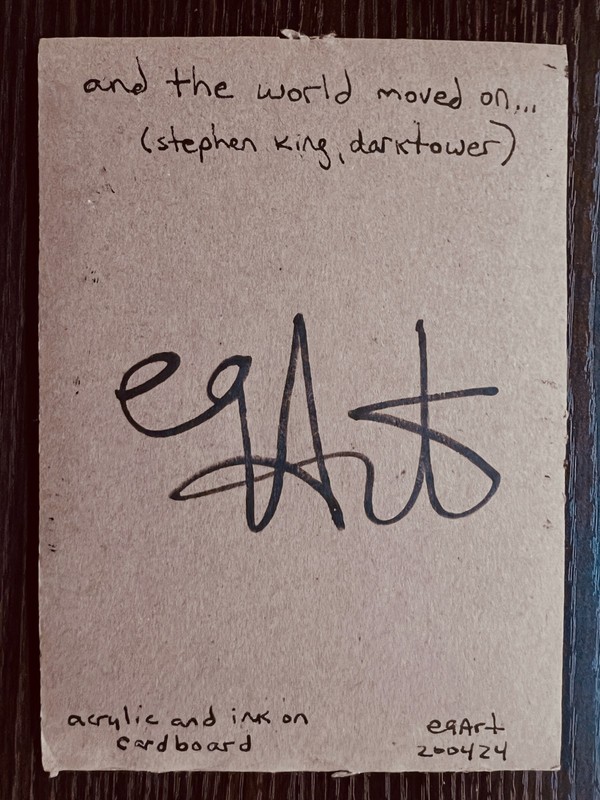 and the world moved on...
(stephen king, darktower)
eqArt
acrylic and ink on
cardboard
eqArt
200424